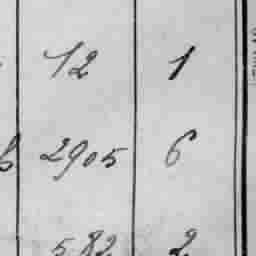 12 1
2905 6
582 2